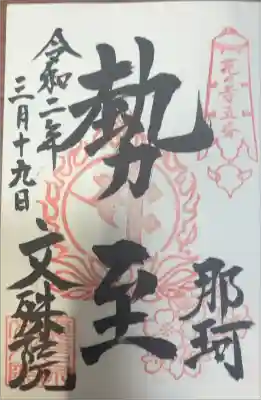 那珂
勢至
令和二年
三月十九日
文殊院